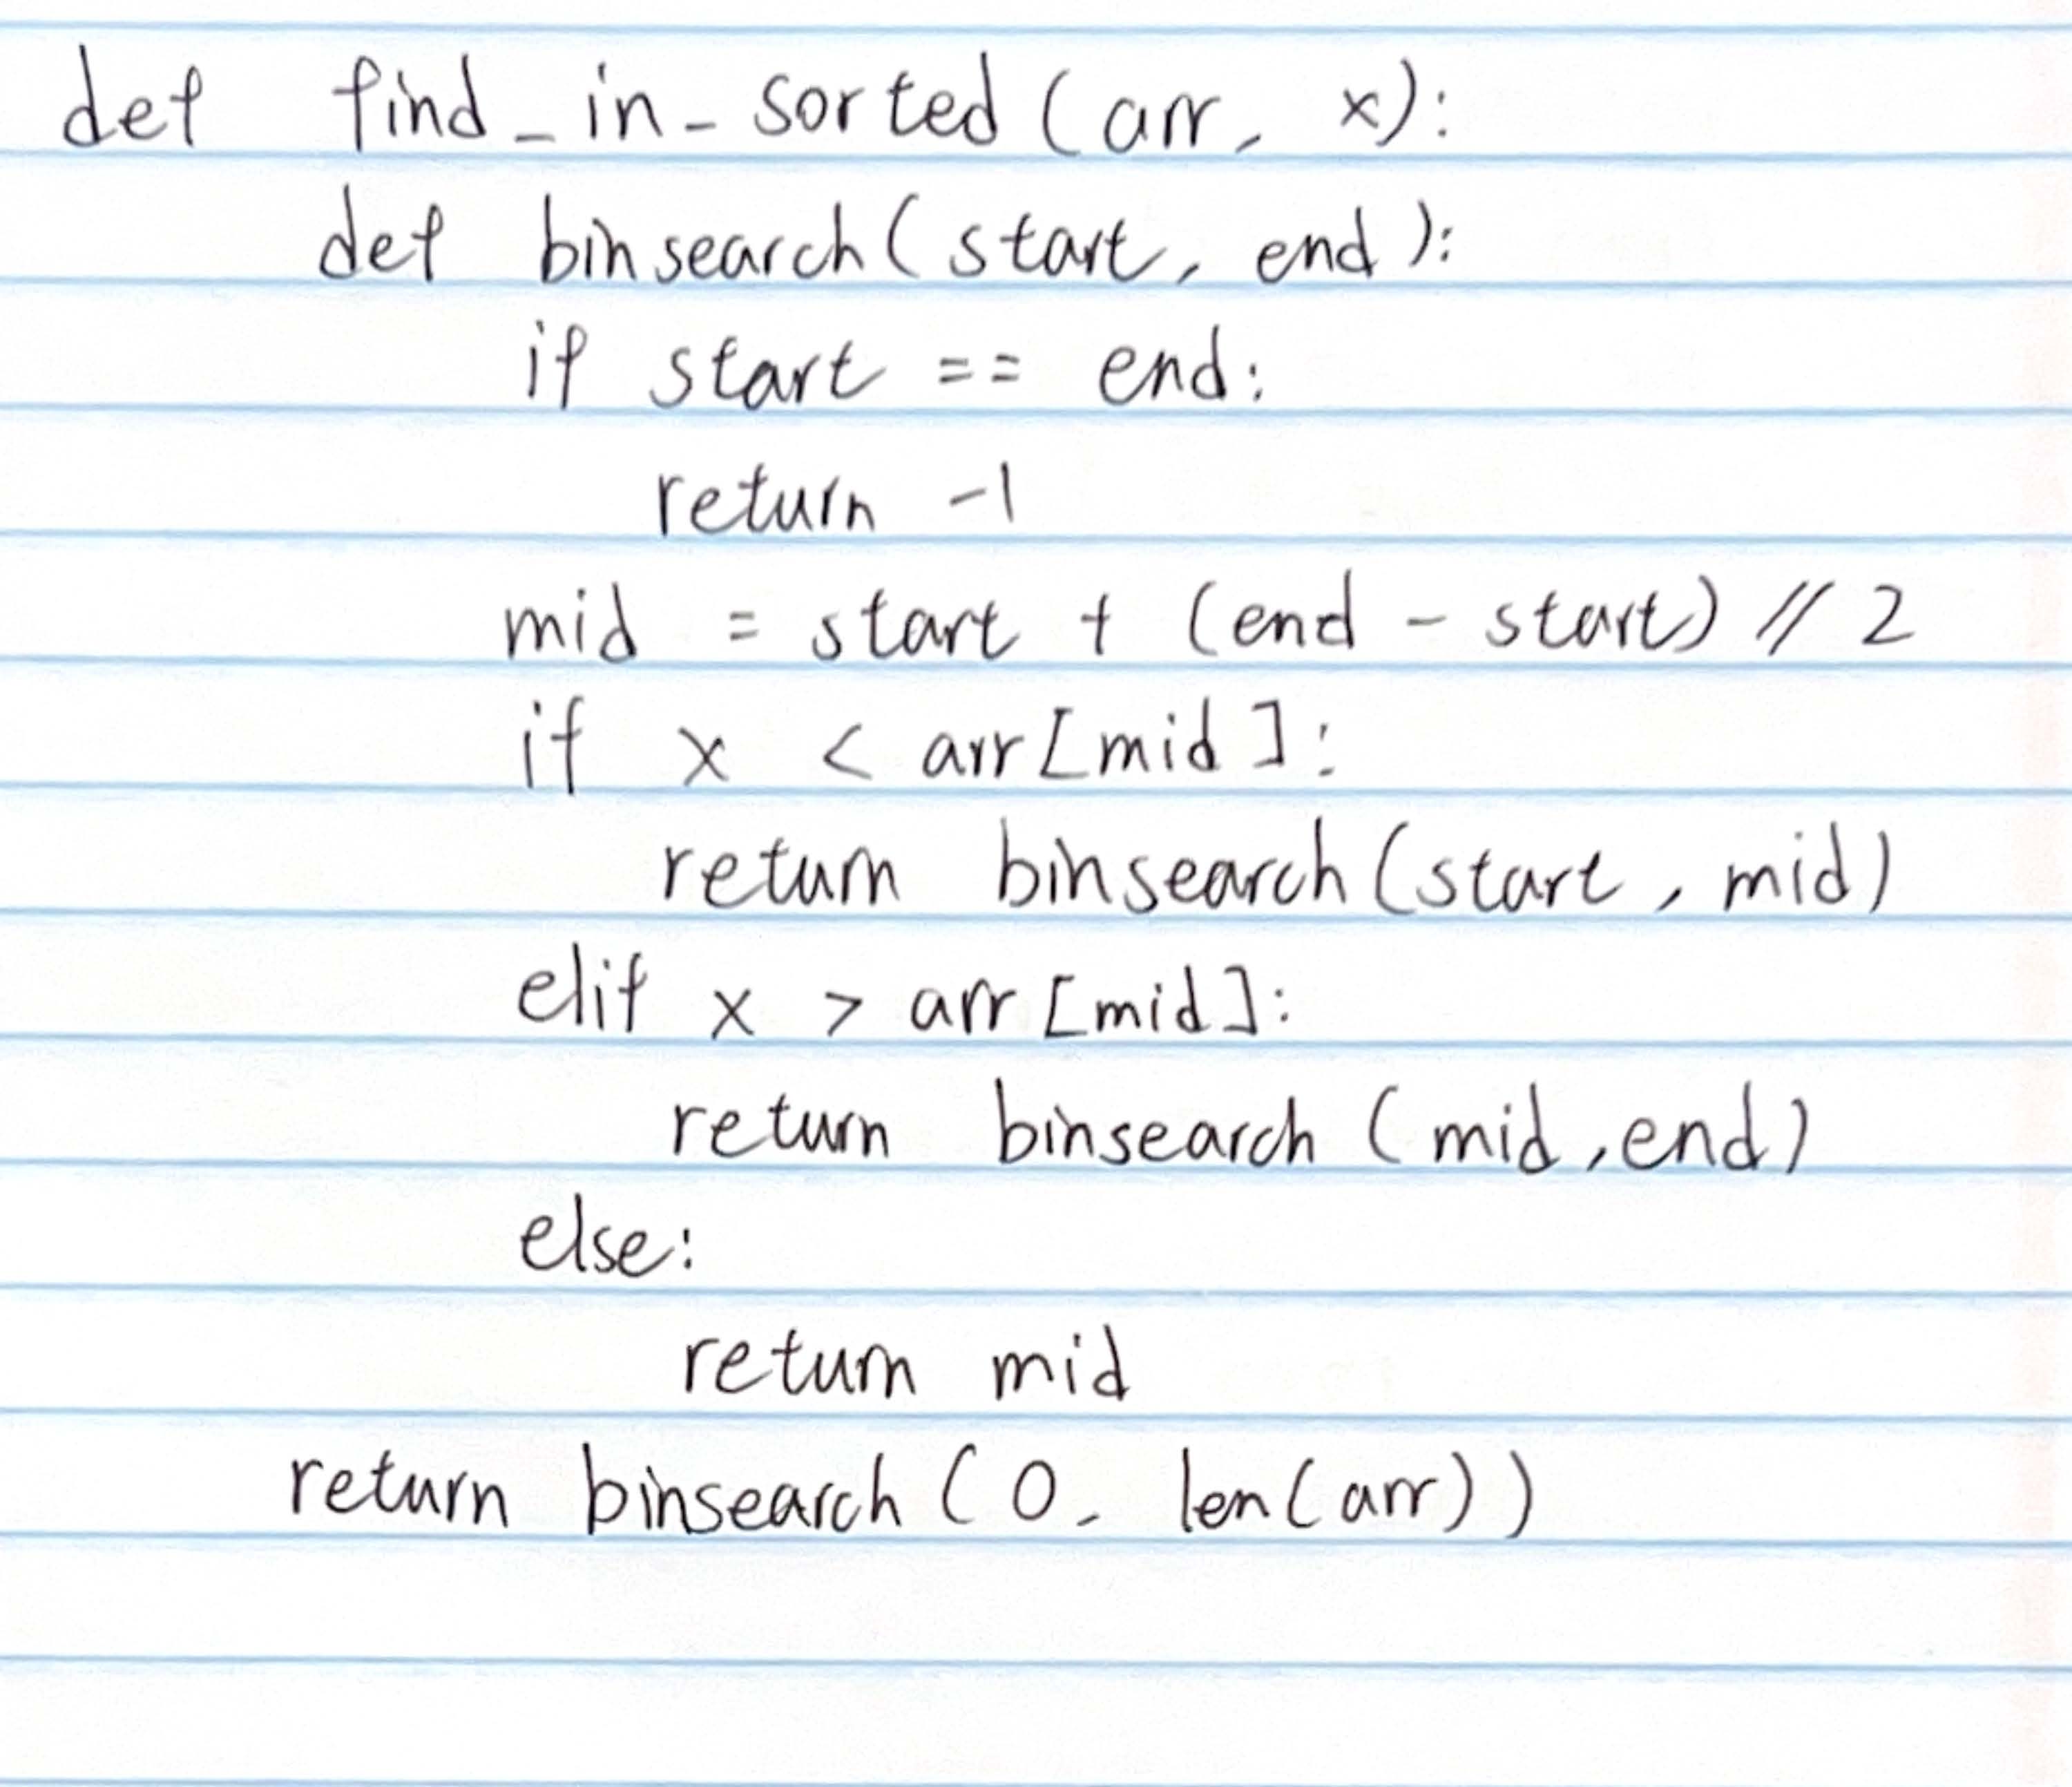 def find_in_sorted(arr, x):
    def binsearch(start, end):
        if start == end:
            return -1
        mid = start + (end - start) // 2
        if x < arr[mid]:
            return binsearch(start, mid)
        elif x > arr[mid]:
            return binsearch(mid, end)
        else:
            return mid
    return binsearch(0, len(arr))